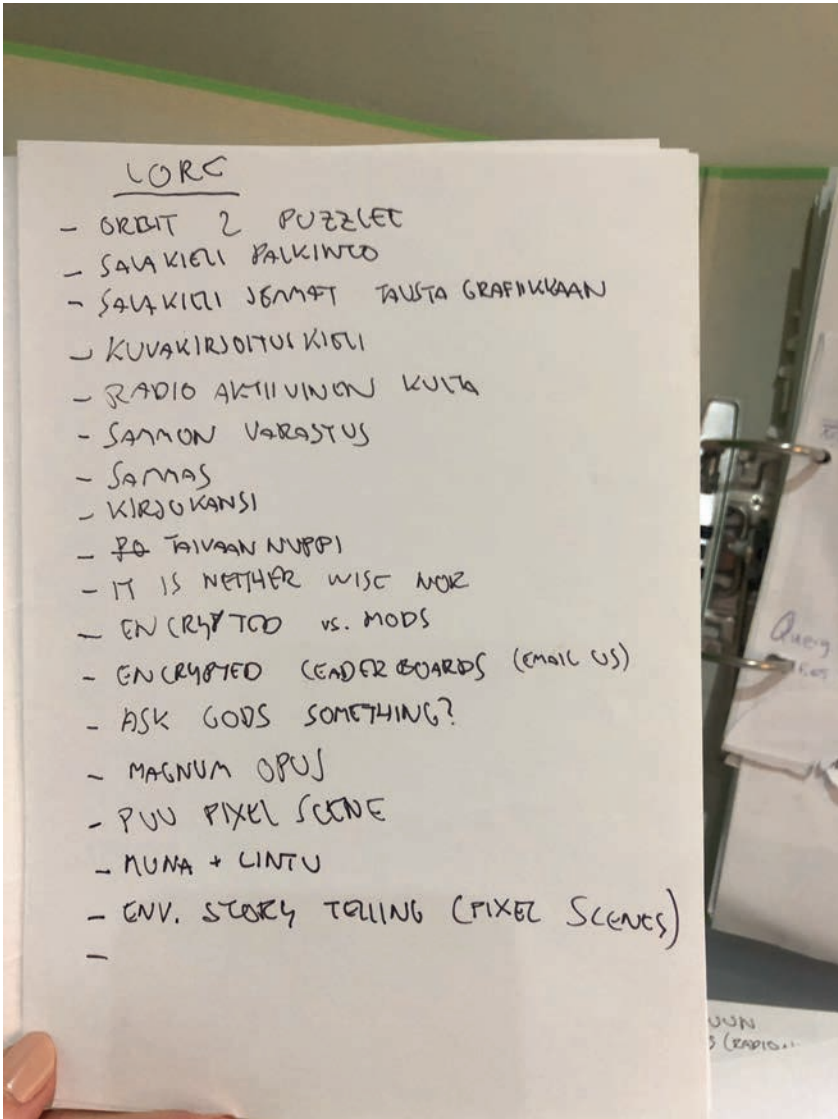 LORE
- ORBIT 2 PUZZLET
- SALAKIELI PALKINTO
- SALAKIELI JEMMAT TAUSTA GRAFIIKKAAN
- KUVAKIRJOITUS KIELI
- RADIO AKTIIVINEN KULTA
- SAMMON VARASTUS
- SAMMAS
- KIRJOKANSI
- TAIVAAN NUPPI
- IT IS NEITHER WISE NOR
- ENCRYPTED vs. MODS
- ENCRYPTED LEADER BOARDS (EMAIL US)
- ASK GODS SOMETHING?
- MAGNUM OPUS
- PUU PIXEL SCENE
- MUNA + LINTU
- ENV. STORY TELLING (PIXEL SCENES)
-